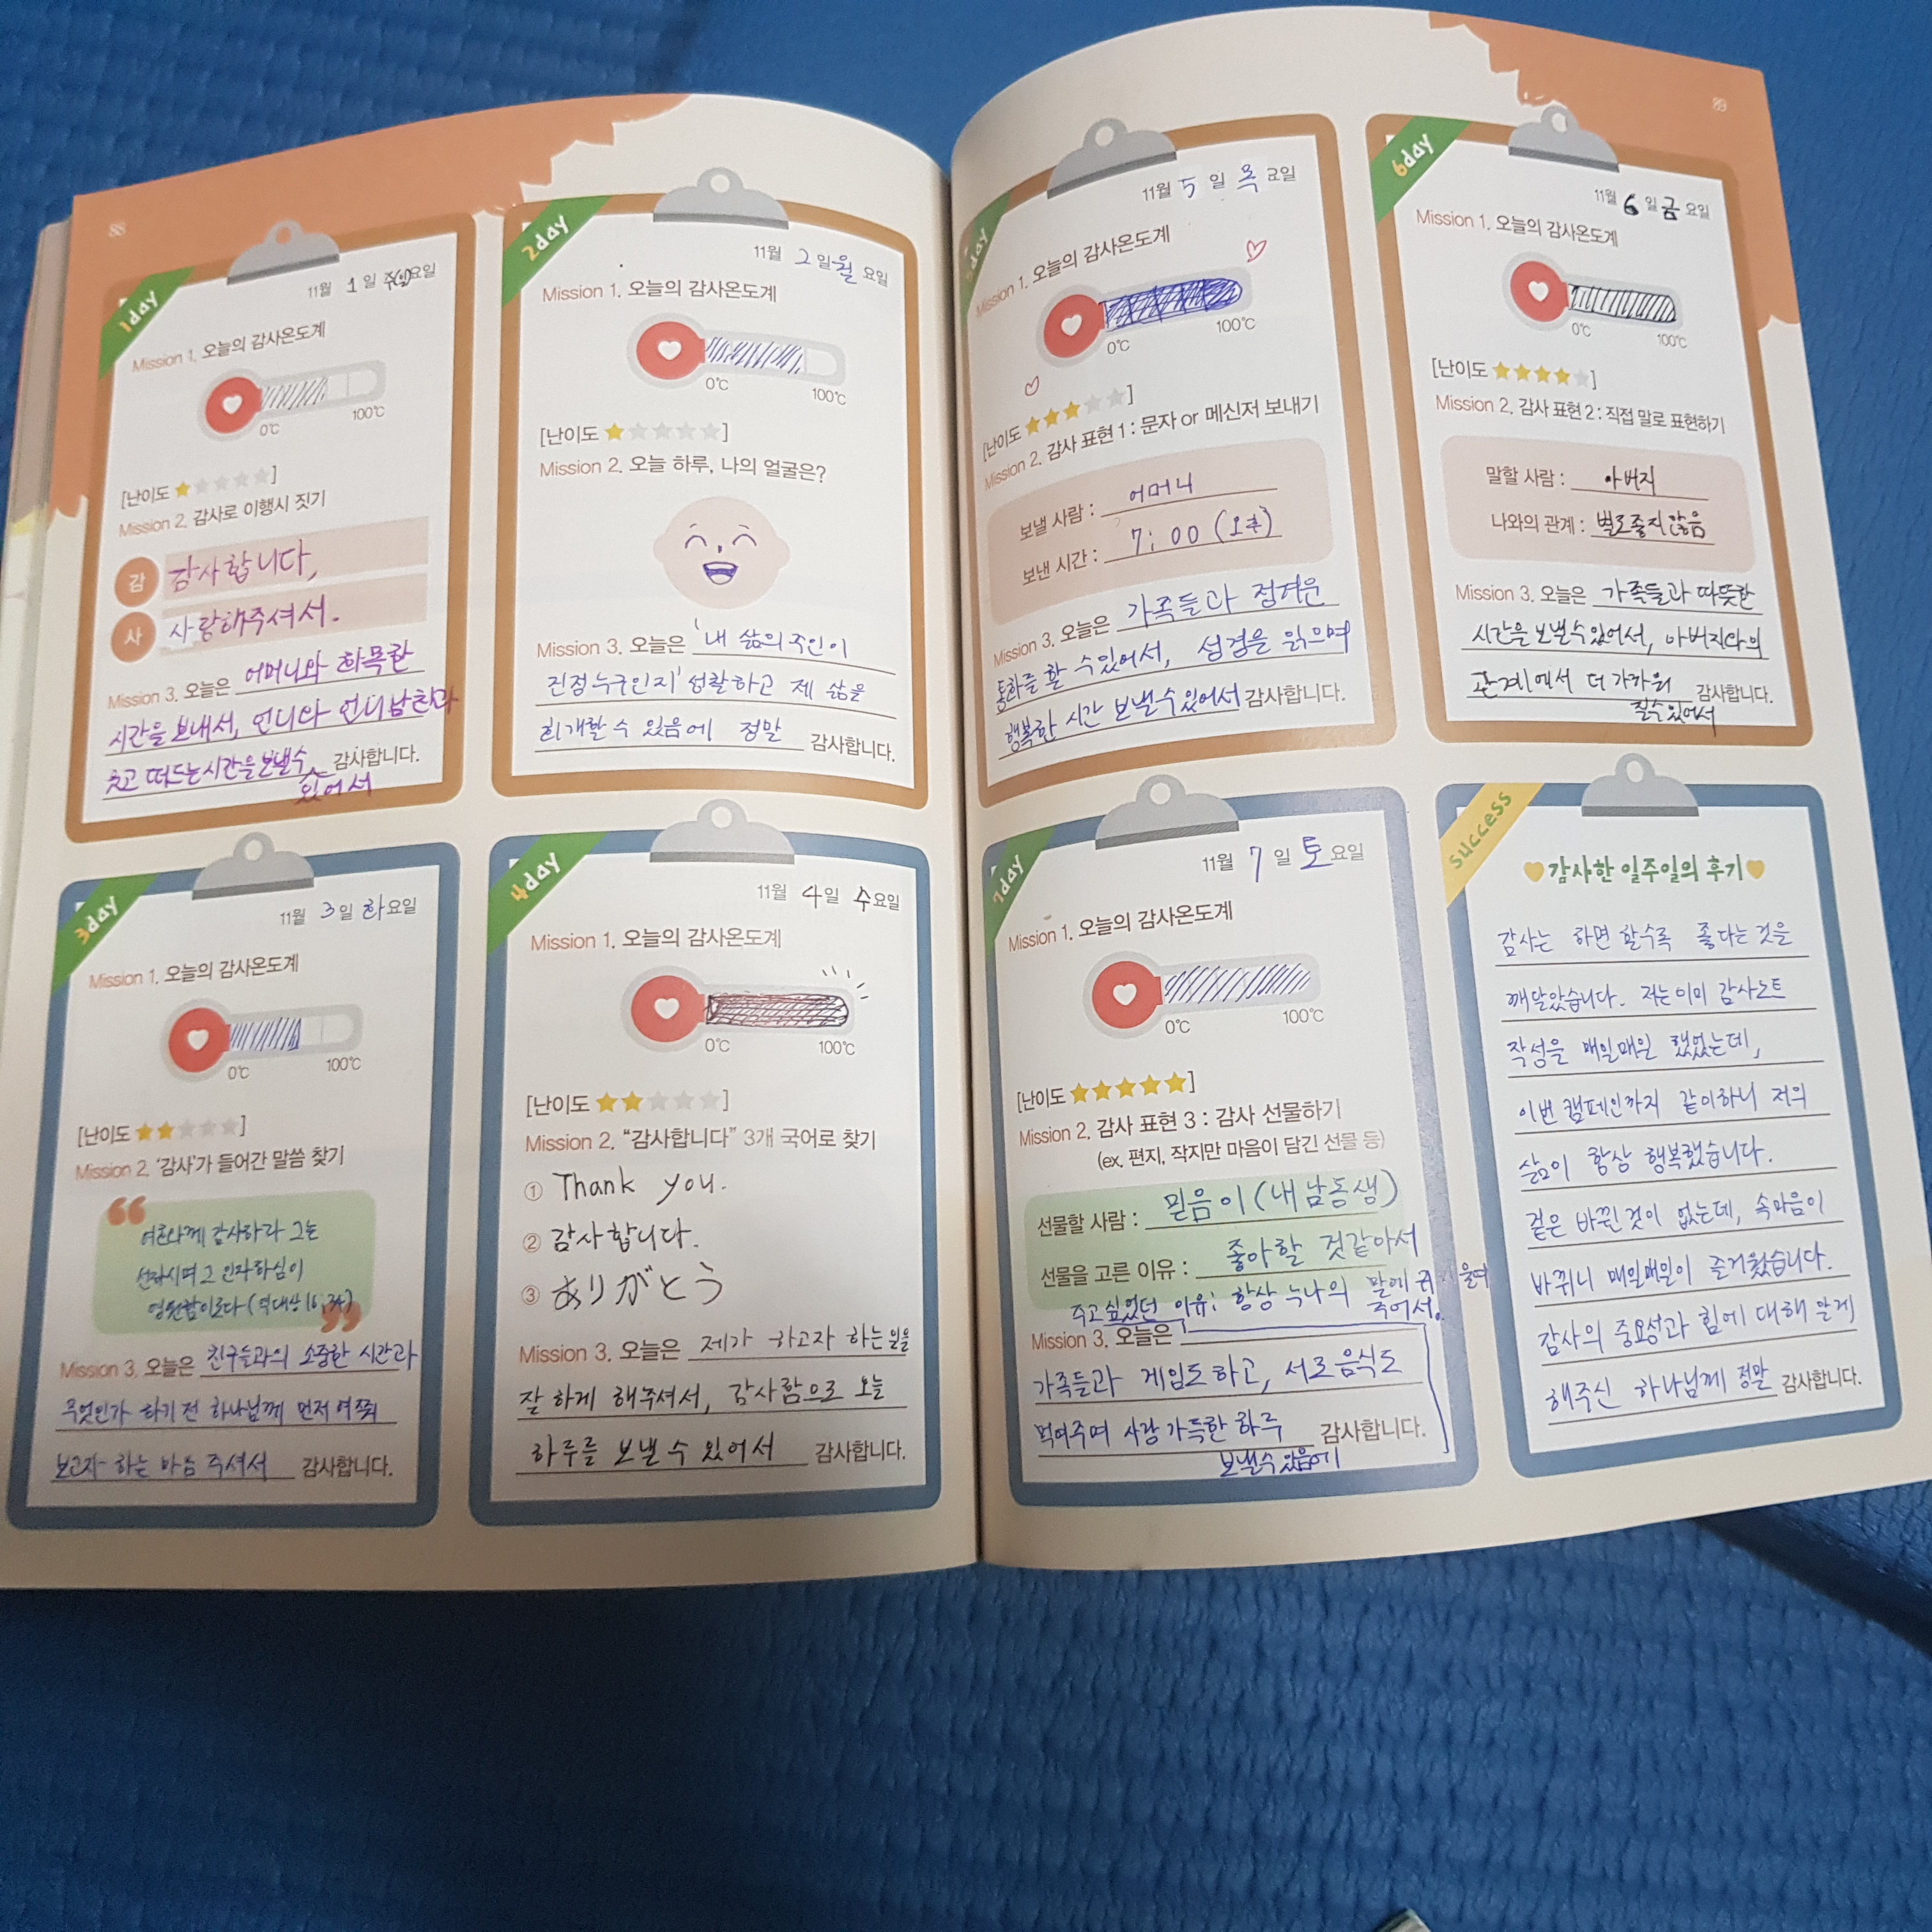 88
1day
11월 1일 주(일)요일
Mission 1. 오늘의 감사온도계
0℃
100℃
[난이도 ★★★★★]
Mission 2. 감사로 이행시 짓기
감 감사합니다,
사 사랑해주셔서.
Mission 3. 오늘은 어머니와 화목한
시간을 보내서, 언니와 언니남친과
웃고 떠드는시간을보낼수 감사합니다.
있어서
2day
11월 2일 월요일
Mission 1. 오늘의 감사온도계
0℃
100℃
[난이도 ★★★★★]
Mission 2. 오늘 하루, 나의 얼굴은?
Mission 3. 오늘은 '내 삶의 주인이
진정 누구인지' 성찰하고 제 삶을
회개할 수 있음에 정말 감사합니다.
3day
11월 3일 화요일
Mission 1. 오늘의 감사온도계
0℃
100℃
[난이도 ★★★★★]
Mission 2. '감사'가 들어간 말씀 찾기
“
여호와께 감사하라 그는
선하시며 그 인자하심이
영원함이로다 (역대상 16:34)
”
Mission 3. 오늘은 친구들과의 소중한 시간과
무엇인가 하기 전 하나님께 먼저 여쭤
보고자 하는 마음 주셔서 감사합니다.
4day
11월 4일 수요일
Mission 1. 오늘의 감사온도계
0℃
100℃
[난이도 ★★★★★]
Mission 2. “감사합니다” 3개 국어로 찾기
① Thank you.
② 감사합니다.
③ ありがとう
Mission 3. 오늘은 제가 하고자 하는 일을
잘 하게 해주셔서, 감사함으로 오늘
하루를 보낼 수 있어서 감사합니다.
89
day
11월 5일 목요일
Mission 1. 오늘의 감사온도계
0℃
100℃
[난이도 ★★★★★]
Mission 2. 감사 표현 1 : 문자 or 메신저 보내기
보낼 사람 : 어머니
보낸 시간 : 7:00 (오후)
Mission 3. 오늘은 가족들과 정겨운
통화를 할 수있어서, 성경을 읽으며
행복한 시간 보낼수있어서 감사합니다.
6day
11월 6일 금요일
Mission 1. 오늘의 감사온도계
0℃
100℃
[난이도 ★★★★★]
Mission 2. 감사 표현 2 : 직접 말로 표현하기
말할 사람 : 아버지
나와의 관계 : 별로좋지않음
Mission 3. 오늘은 가족들과 따뜻한
시간을 보낼수있어서, 아버지와의
관계에서 더 가까워 감사합니다.
질수있어서
7day
11월 7일 토요일
Mission 1. 오늘의 감사온도계
0℃
100℃
[난이도 ★★★★★]
Mission 2. 감사 표현 3 : 감사 선물하기
(ex. 편지, 작지만 마음이 담긴 선물 등)
선물할 사람 : 믿음이 (내 남동생)
선물을 고른 이유 : 좋아할 것같아서
주고싶었던 이유: 항상 누나의 말에 귀 기울여
주어서.
Mission 3. 오늘은
가족들과 게임도하고, 서로음식도
먹여주며 사랑가득한 하루 감사합니다.
보낼수있음에
success
감사한 일주일의 후기
감사는 하면 할수록 좋다는 것을
깨달았습니다. 저는이미 감사노트
작성을 매일매일 했었는데,
이번 캠페인까지 같이하니 저의
삶이 항상 행복했습니다.
겉은 바뀐것이 없는데, 속마음이
바뀌니 매일매일이 즐거웠습니다.
감사의 중요성과 힘에 대해 알게
해주신 하나님께 정말 감사합니다.